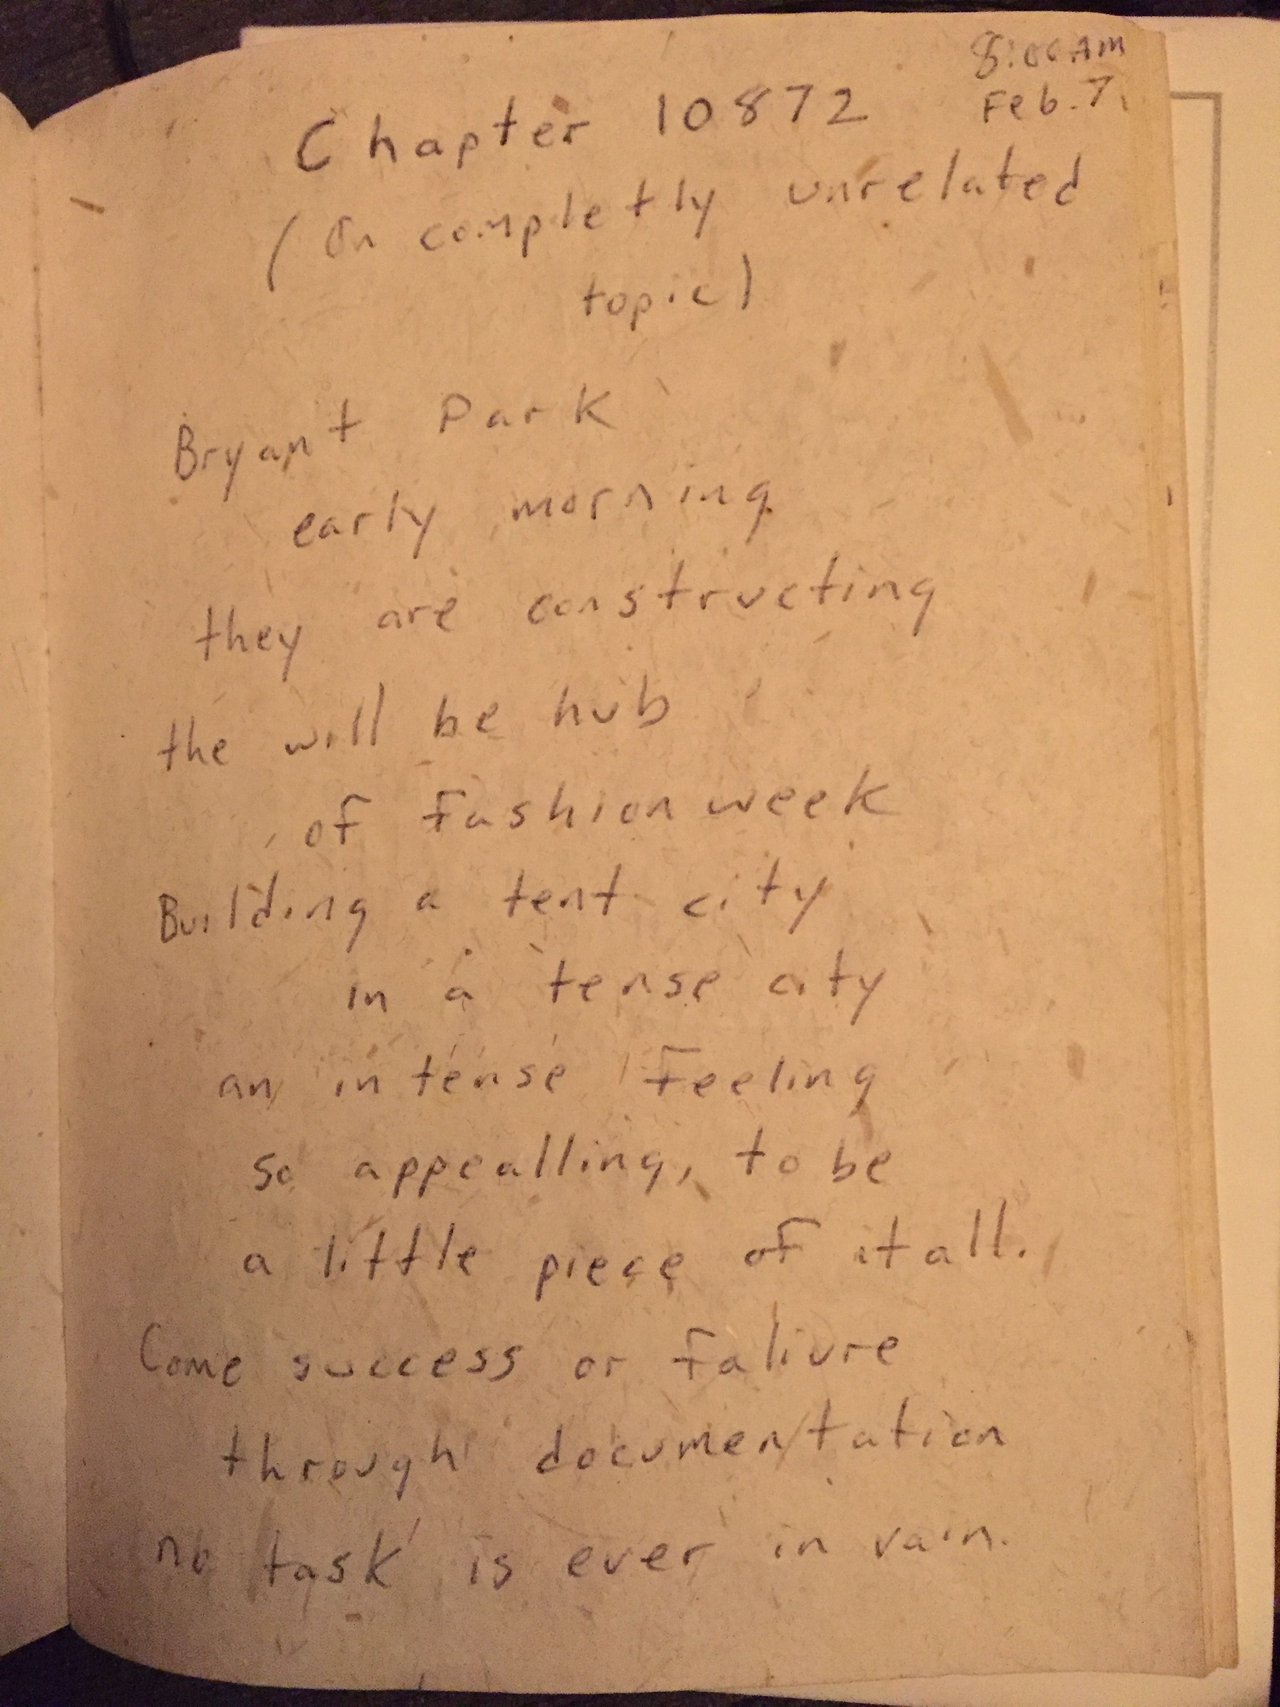 8:00 AM
Feb. 7
Chapter 10872
(On completly unrelated
topic)
Bryant Park
early morning
they are constructing
the will be hub
of Fashion week
Building a tent city
in a tense city
an intense Feeling
so appealling, to be
a little piece of it all.
Come success or faliure
through documentation
no task is ever in vain.